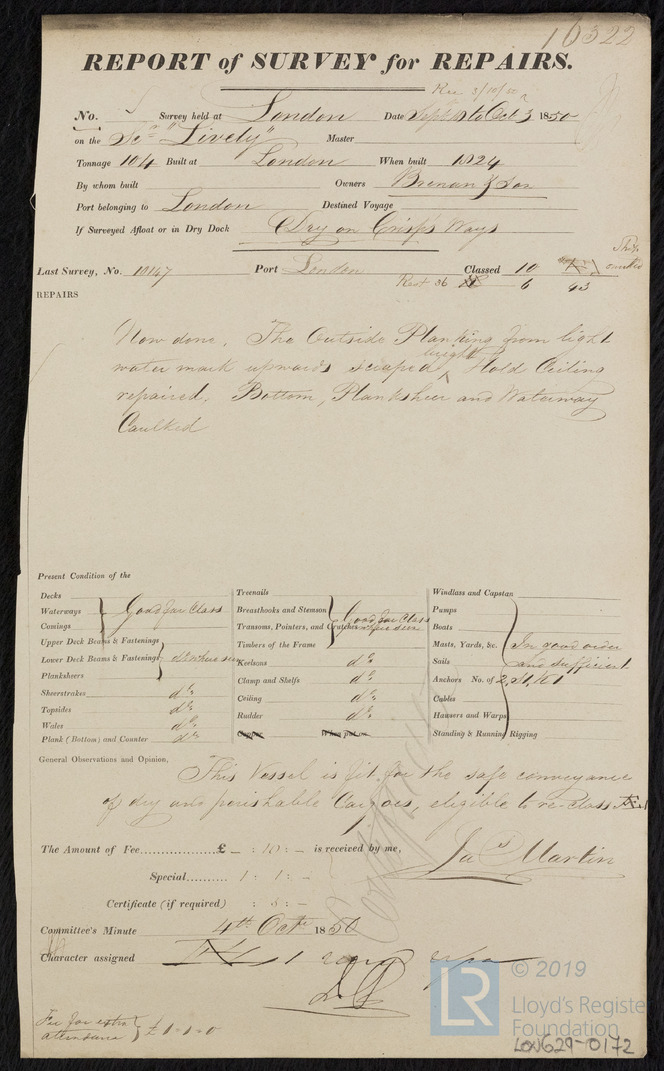 16522
REPORT of SURVEY for REPAIRS.
Rec 3/10/50
No. Survey held at London Date Sept to Oct 3 1850
on the Scr "Lively" Master
Tonnage 104 Built at London When built 1824
By whom built Owners Brenan & Son
Port belonging to London Destined Voyage
If Surveyed Afloat or in Dry Dock Dry on Crisp's Ways
Last Survey, No. 10147 Port London Classed 10
Rest 36 6 43
REPAIRS
Now done. The Outside Planking from light
water mark upwards scraped bright Hold Ceiling
repaired. Bottom, Planksheer and Waterway
Caulked
Present Condition of the
Decks
Waterways Good for Class
Comings
Upper Deck Beams & Fastenings
Lower Deck Beams & Fastenings do where seen
Planksheers
Sheerstrakes do
Topsides do
Wales do
Plank (Bottom) and Counter do
Treenails
Breasthooks and Stemson Good for Class
Transoms, Pointers, and Crutches where seen
Timbers of the Frame
Keelsons do
Clamp and Shelfs do
Ceiling do
Rudder do
Copper When put on
Windlass and Capstan
Pumps
Boats
Masts, Yards, &c. In good order
Sails and sufficient
Anchors No. of 2, St, 1 K1
Cables
Hausers and Warps
Standing & Running Rigging
General Observations and Opinion,
This Vessel is fit for the safe conveyance
of dry and perishable Cargoes, eligible to re-class
The Amount of Fee £ - : 10 : - is received by me,
Jas Martin
Special 1 : 1 : -
Certificate (if required) : 5 : -
Committee's Minute 4th Octr 1850
Character assigned
Fee for extra
attendance £1-1-0
© 2019
LR
Lloyd's Register
Foundation
LON629-0172